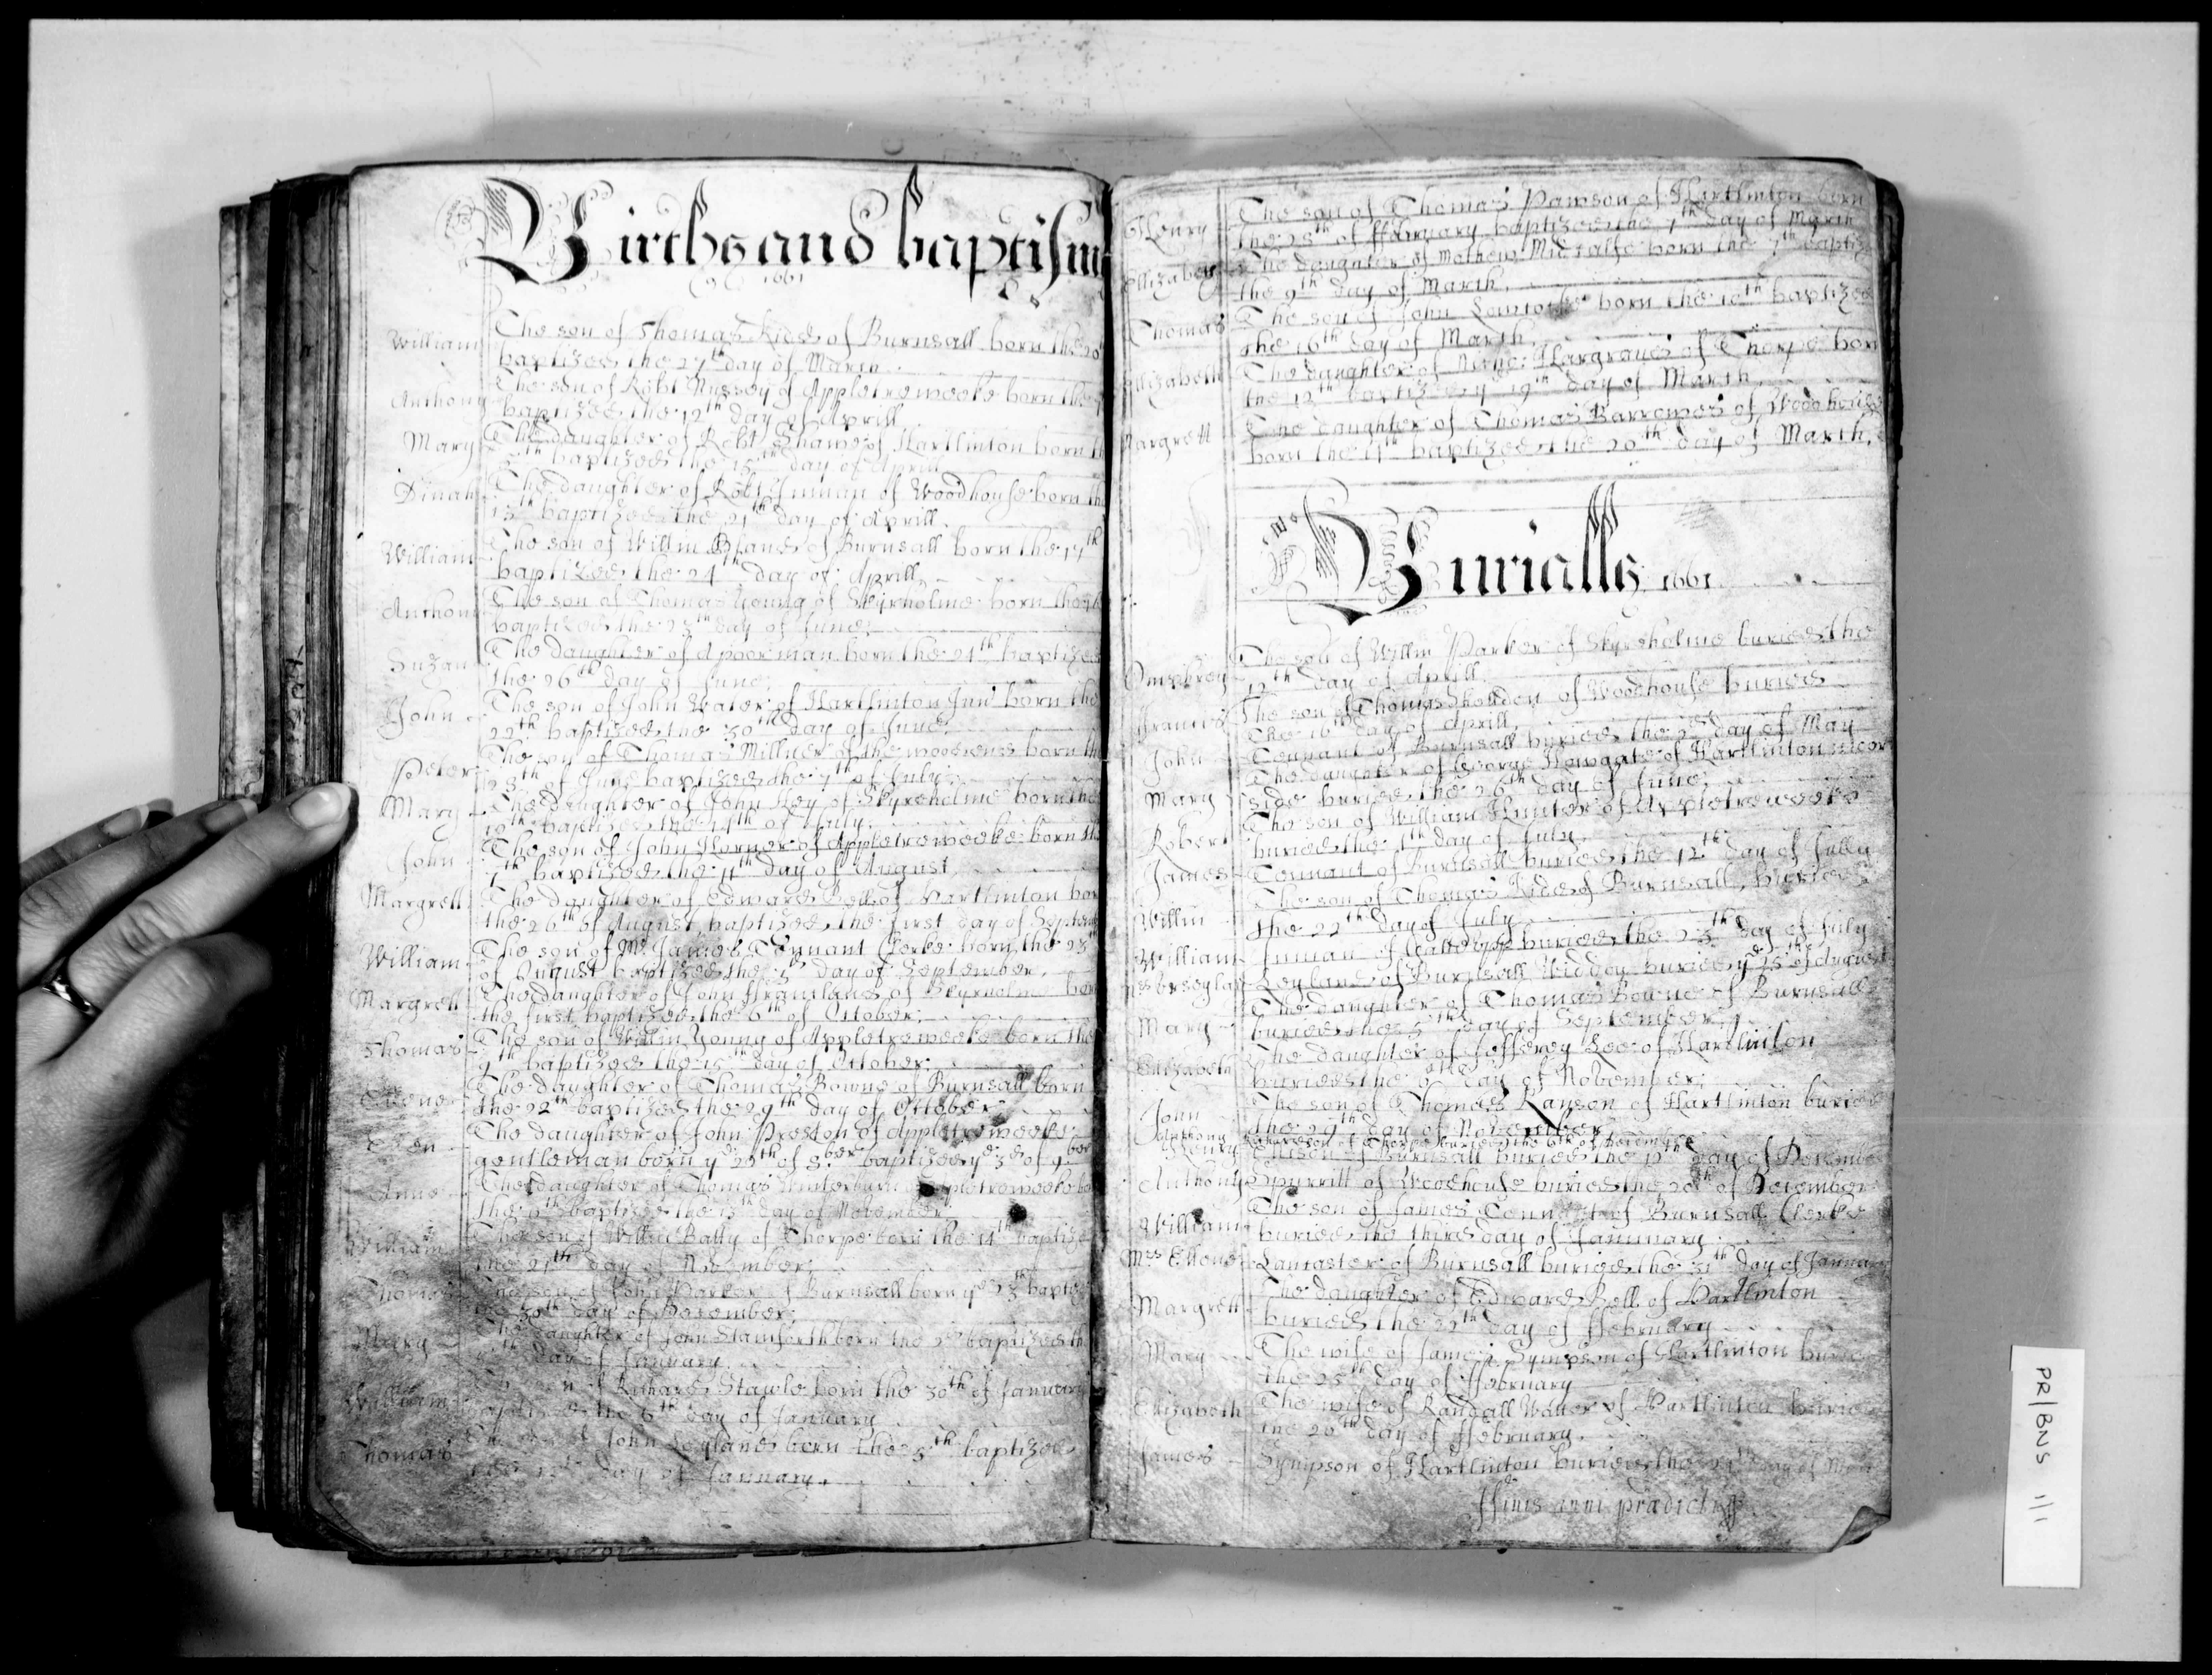 Births and baptism
1661
William The son of Thomas Kidd of Burnsall born the 20
baptized the 27th day of March
Anthony The son of Robt Nussey of Appletreweeke born the
baptized the 12th day of Aprill
Mary The daughter of Robt Shawe of Hartlinton born th
baptized the 15th day of Aprill
Dinah The daughter of Robt Inman of Woodhouse born the
13th baptized the 21th day of Aprill
William The son of Willm Bland of Burnsall born the 17th
baptized the 24th day of Aprill
Anthony The son of Thomas Young of Skyrholme born the
baptized the 23th day of June
Suzan The daughter of a poor man born the 21th baptized
the 26th day of June
John The son of John Water of Hartlinton Junr born the
22th baptized the 30th day of June
Peter The son of Thomas Millner of the born th
23th of June baptized the 7th of July
Mary The daughter of John Hey of Skyreholme born the
10th baptized the 14th of July
John The son of John Horner of Appletreweeke born th
7th baptized the 11th day of August
Margrett The daughter of Edward Bell of Hartlinton bor
the 26th of August baptized the first day of Septem
William The son of Mr James Tennant Clerke born the 23th
of August baptized the 5th day of September
Margrett The daughter of John Framland of Skyrholme bor
the first baptized the 6th of October
Thomas The son of Willm Young of Appletreweeke born the
9th baptized the 15th day of October
The daughter of Thomas Bowne of Burnsall born
the 22th baptized the 29th day of October
Ellen The daughter of John Preston of Appletreweeke
gentleman born ye 29th of 8ber baptized ye 3d of 9ber
Anne The daughter of Thomas Winterburn Appletreweeke bo
the 6th baptized the 13th day of November
William The son of Willm Batty of Thorpe born the 11th baptize
the 21th day of November
Thomas The son of John Parker of Burnsall born ye 23th baptiz
the 30th day of December
Mary The daughter of John Stamforth born the 2d baptized th
day of January
William The son of Richard Stawle born the 30th of January
baptized the 6th day of January
Thomas The son of John Leyland born the 5th baptized
the 12th day of January
Henry The son of Thomas Pawson of Hartlinton born
the 28th of ffebruary baptized the 7th day of March
Ellizabeth The daughter of Mathew Midcalfe born the 7th baptiz
the 9th day of March
Thomas The son of John born the 10th baptized
the 16th day of March
Ellizabeth The daughter of Hargraves of Thorpe born
the 12th baptized ye 19th day of March
Margrett The daughter of Thomas Barrowes of Woodhouse
born the 11th baptized the 20th day of March
Burialls 1661
The son of Willm Parker of Skyreholme buried the
12th day of Aprill
ffrancis The son of Thomas of Woodhouse buried
The 16th day of Aprill
John Tennant of Burnsall buried the 2d day of May
Mary The daughter of George Howgate of Hartlinton
side buried the 26th day of June
Robert The son of William Hunter of Appletreweeke
buried the 1th day of July
James Tennant of Burnsall buried the 12th day of July
Willm The son of Thomas Kidd of Burnsall buried
the 22th day of July
William Inman of buried the 23th day of July
Leyland of Burnsall Widdow buried ye 25th of August
Mary The daughter of Thomas Bowne of Burnsall
buried the 5th day of September
Elizabeth The daughter of Jefferey Lee of Hartlinton
buried the 6th day of November
John The son of Thomas Rawson of Hartlinton buried
the 29th day of November
Anthony of Thorpe buried the 6th of December
Henry Ellison of Burnsall buried the 12th day of Decembe
Anthony Spurritt of Woodhouse buried the 20th of December
William The son of James Tennant of Burnsall Clerke
buried the third day of January
Mrs Ellene Lancaster of Burnsall buried the 31th day of Janua
Margrett The daughter of Edward Bell of Hartlinton
buried the 22th day of ffebruary
Mary The wife of James Sympson of Hartlinton buried
the 25th day of ffebruary
Elizabeth The wife of Randall Water of Hartlinton buried
the 26th day of ffebruary
James Sympson of Hartlinton buried the day of Mar
ffinis anni prædicti
PR/BNS 1/1